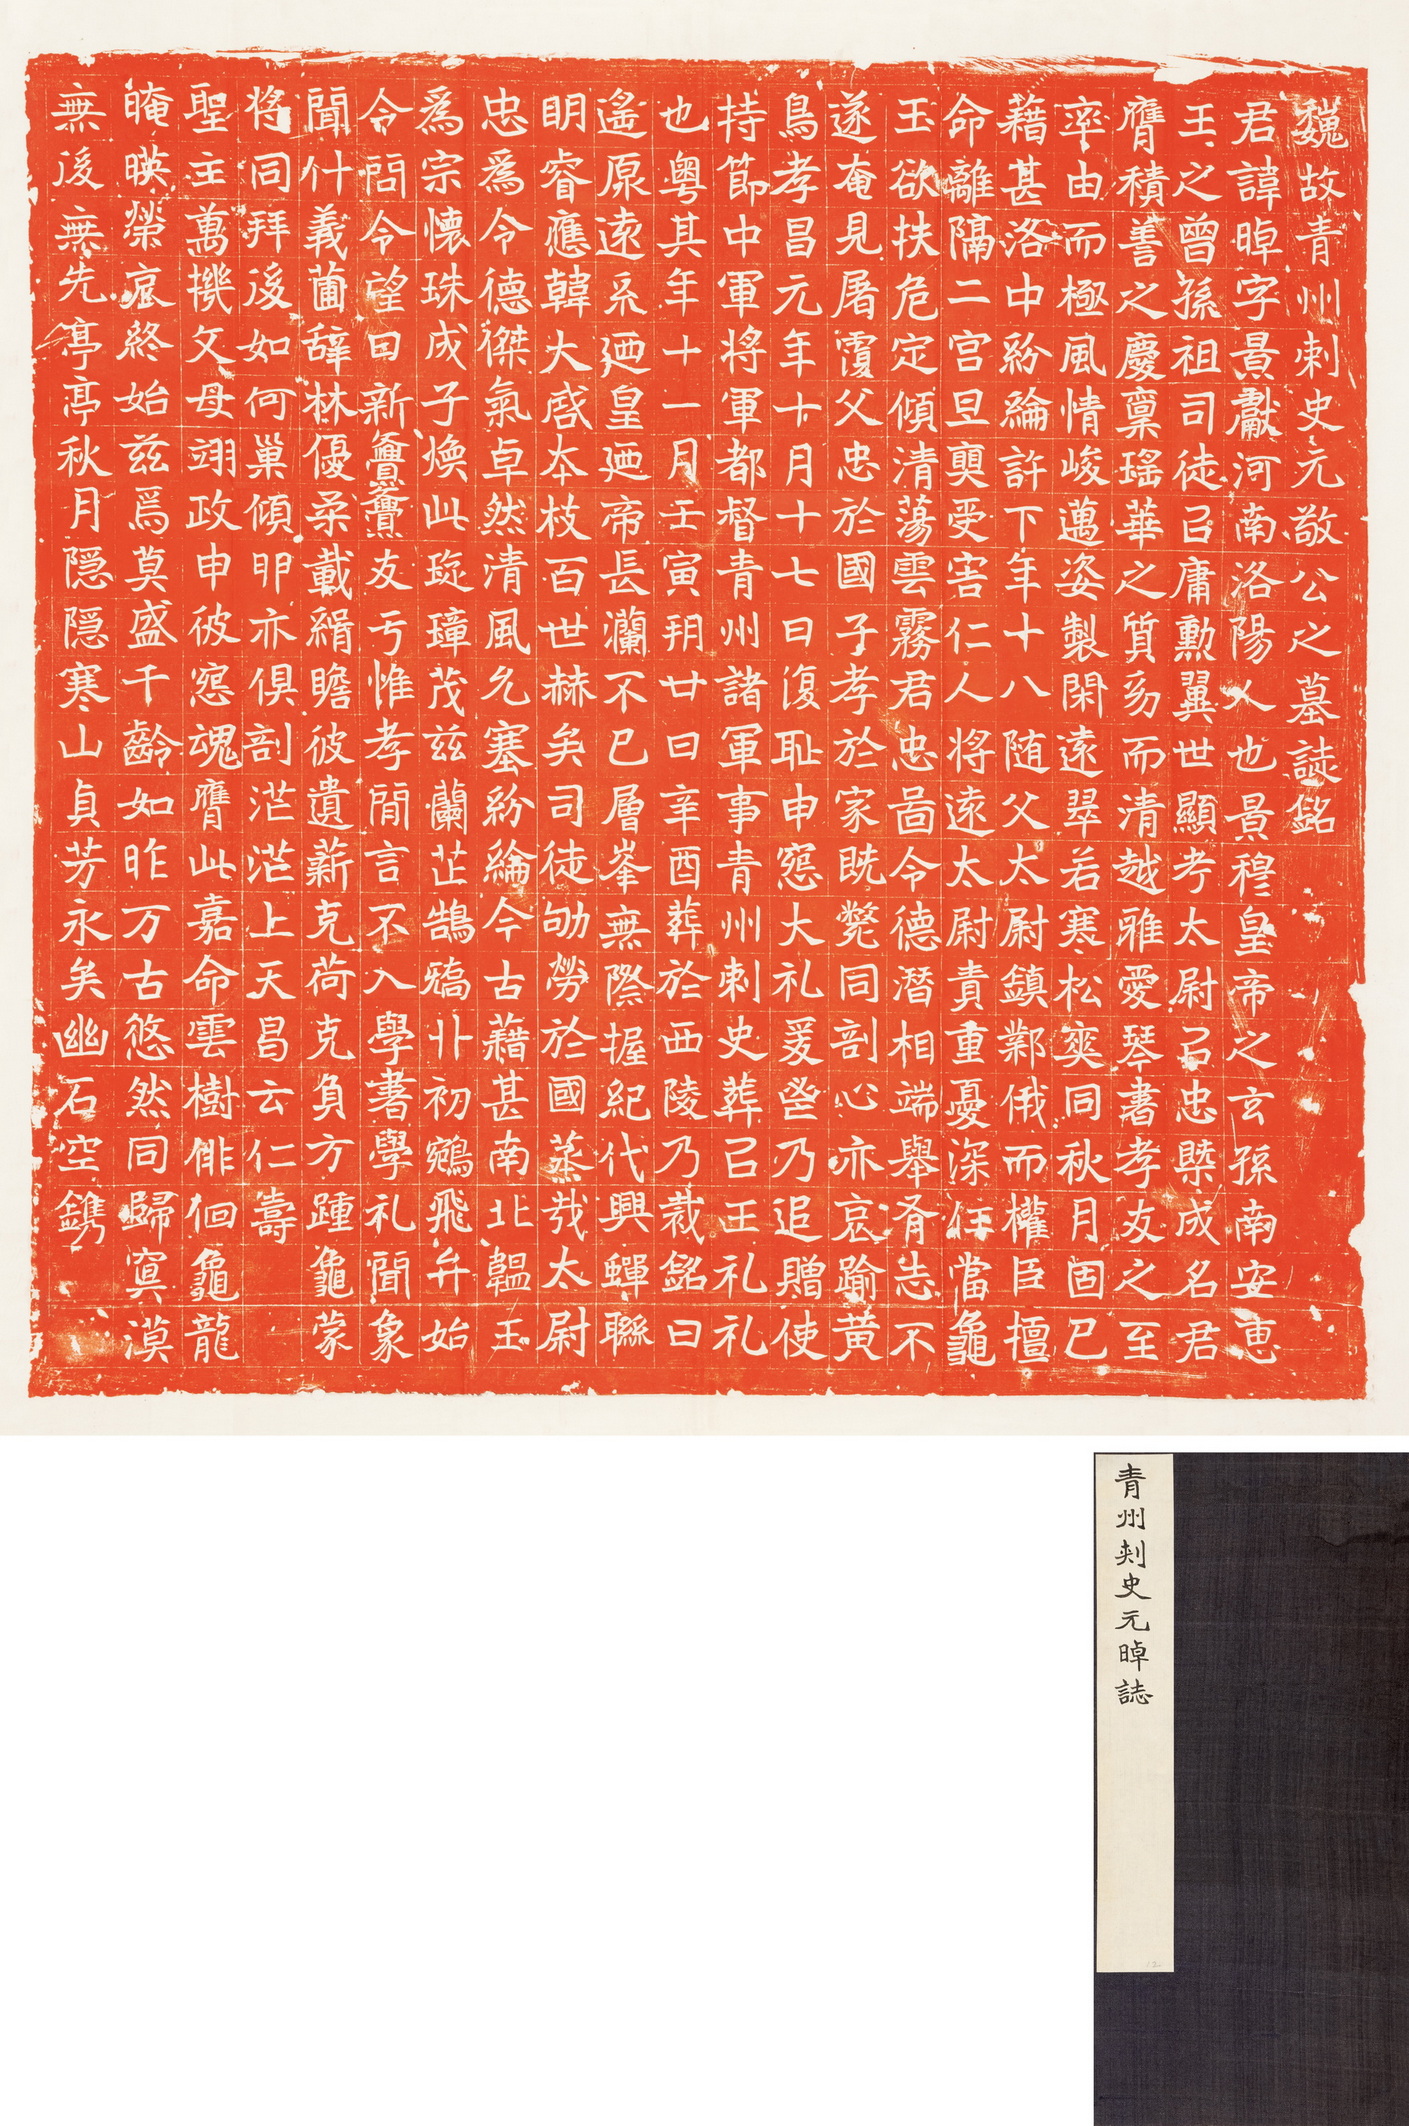 魏故青州刺史元敬公之墓誌銘
君諱晫字景獻河南洛陽人也景穆皇帝之玄孫南安惠
王之曾孫祖司徒㠯庸勳翼世顯考太尉㠯忠槩成名君
膺積善之慶稟瑤華之質幼而清越雅愛琴書孝友之至
率由而極風情峻邁姿製閑遠翠若寒松奭同秋月固已
藉甚洛中紛綸許下年十八随父太尉鎮鄴俄而權臣擅
命離隔二宮旦奭受害仁人將遠太尉責重憂深任當龜
玉欲扶危定傾清蕩雲霧君忠啚令德潛相端舉肴志不
遂奄見屠覆父忠於國子孝於家既斃同剖心亦哀踰黃
鳥孝昌元年十月十七日復恥申寃大礼爰發乃追贈使
持節中軍將軍都督青州諸軍事青州刺史葬㠯王礼礼
也粵其年十一月壬寅朔廿日辛酉葬於西陵乃裁銘曰
遙原遠系迺皇迺帝長瀾不已層峯無際握紀代興蟬聯
明睿應韓大啓本枝百世赫矣司徒劬勞於國蒸哉太尉
忠爲令德傑氣卓然清風允塞紛綸今古藉甚南北韞玉
爲宗懷珠成子煥此琁璋茂茲蘭芷鵠鷮丱初鵷飛弁始
令問令望日新亹亹友于惟孝閒言不入學書學礼聞象
聞什義圃辭林優柔載緝瞻彼遺薪克荷克負方踵龜蒙
將同拜後如何巢傾卵亦俱剖茫茫上天曷云仁壽
聖主萬機文母翊政申彼寃魂膺此嘉命雲樹徘徊龜龍
晻暎榮哀終始茲爲莫盛千齡如昨万古悠然同歸寞漠
無後無先亭亭秋月隐隐寒山貞芳永矣幽石空鐫
青州刺史元晫誌